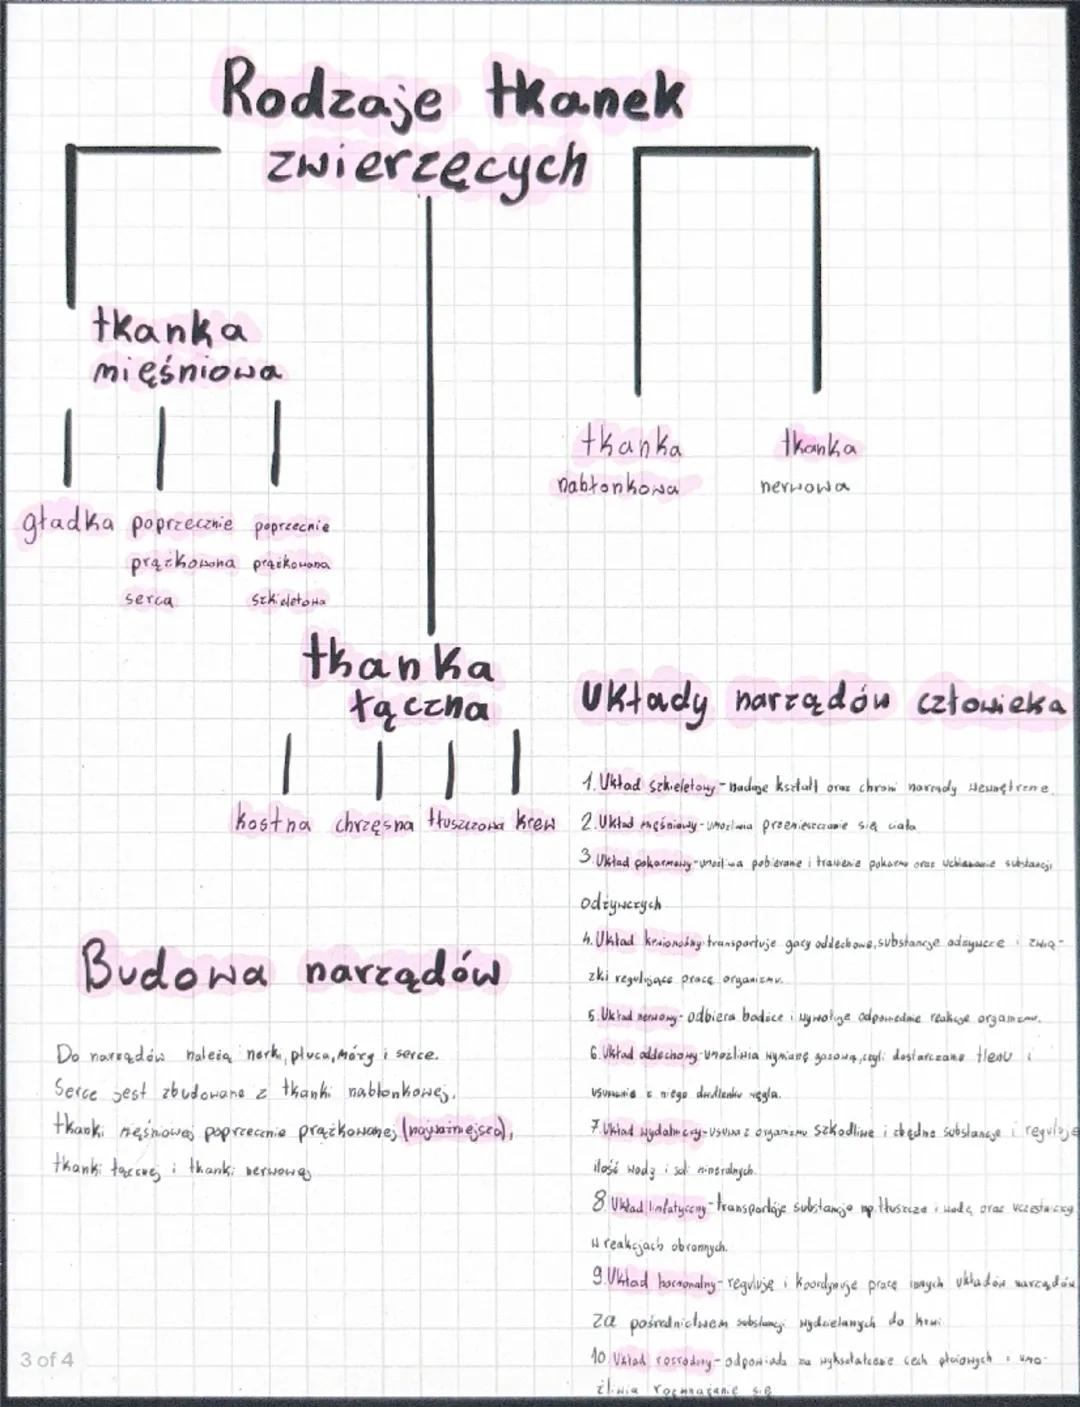 Rodzaje tkanek
zwierzęcych
tkanka
mięśniowa
gładka
poprzecznie
prążkowana
serca
poprzecnie
prążkowana
szkieletowa
tkanka
nabłonkowa
tkanka
nerwowa
tkanka
łączna
kostna
chrzęsna
tłuszczowa
krew
Budowa narządów
Do narządów należą nerki, płuca, mózg i serce.
Serce jest zbudowane z tkanki nabłonkowej,
tkanki mięśniowej poprzecznie prążkowanej (najważniejsza),
tkanki łącznej i tkanki nerwowej
Układy narządów człowieka
1. Układ szkieletowy - nadaje kształt oraz chroni narządy wewnętrzne.
2. Układ mięśniowy - umożliwia przemieszczanie się ciała
3. Układ pokarmowy - umożliwa pobieranie i trawienie pokarmu oraz wchłanianie substancji
odżywczych
4. Układ krwionośny - transportuje gazy oddechowe, substancje odżywcze i zwią-
zki regulujące pracę organizmu.
5. Układ nerwowy - odbiera bodźce i wywołuje odpowiednie reakcje organizmu.
6. Układ oddechowy - umożliwia wymianę gazową, czyli dostarczanie tlenu i
usuwanie z niego dwutlenku węgla.
7. Układ wydalniczy - usuwa z organizmu szkodliwe i zbędne substancje i reguluje
ilość wody i soli mineralnych.
8. Układ limfatyczny - transportuje substancje np. tłuszcze i wodę oraz uczestniczy
w reakcjach obronnych.
9. Układ hormonalny - reguluję i koordynuje pracę innych układów narządów
za pośrednictwem substancji wydzielanych do krwi
10. Układ rozrodczy - odpowiada za wykształcenie cech płciowych i umo-
żliwia rozmnażanie się
3 of 4